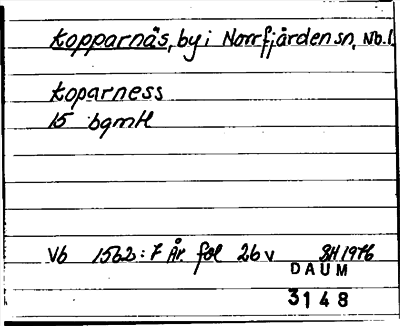 Kopparnäs, by i Norrfjärden sn, Nb.l.
Koparness
15 bgmtl
Vb 1562:7 År. fol 26v SH 1976
DAUM
3148